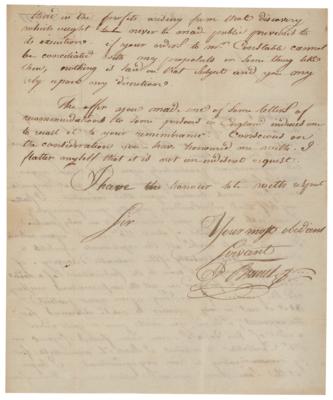 share in the profits arising from that discovery
which ought to be never be made public previous to
its execution if your ardor to Mr. Constable cannot
be conciliated with my proposals or some thing like
them, nothing is said on that subject and you may
rely upon my discretion.
The offer you made me of some letters of
recommendations to some persons in England induces me
to recall it to your remembrance. Conscious on
the consideration you have honoured me with. I
flatter myself that it is not an indiscreet request.
I have the honour to be with respect
Sir
Your most obedient
Servant